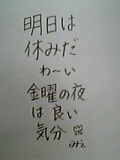 明日は
休みだ
わ～い
金曜の夜
は良い
気分
みえ